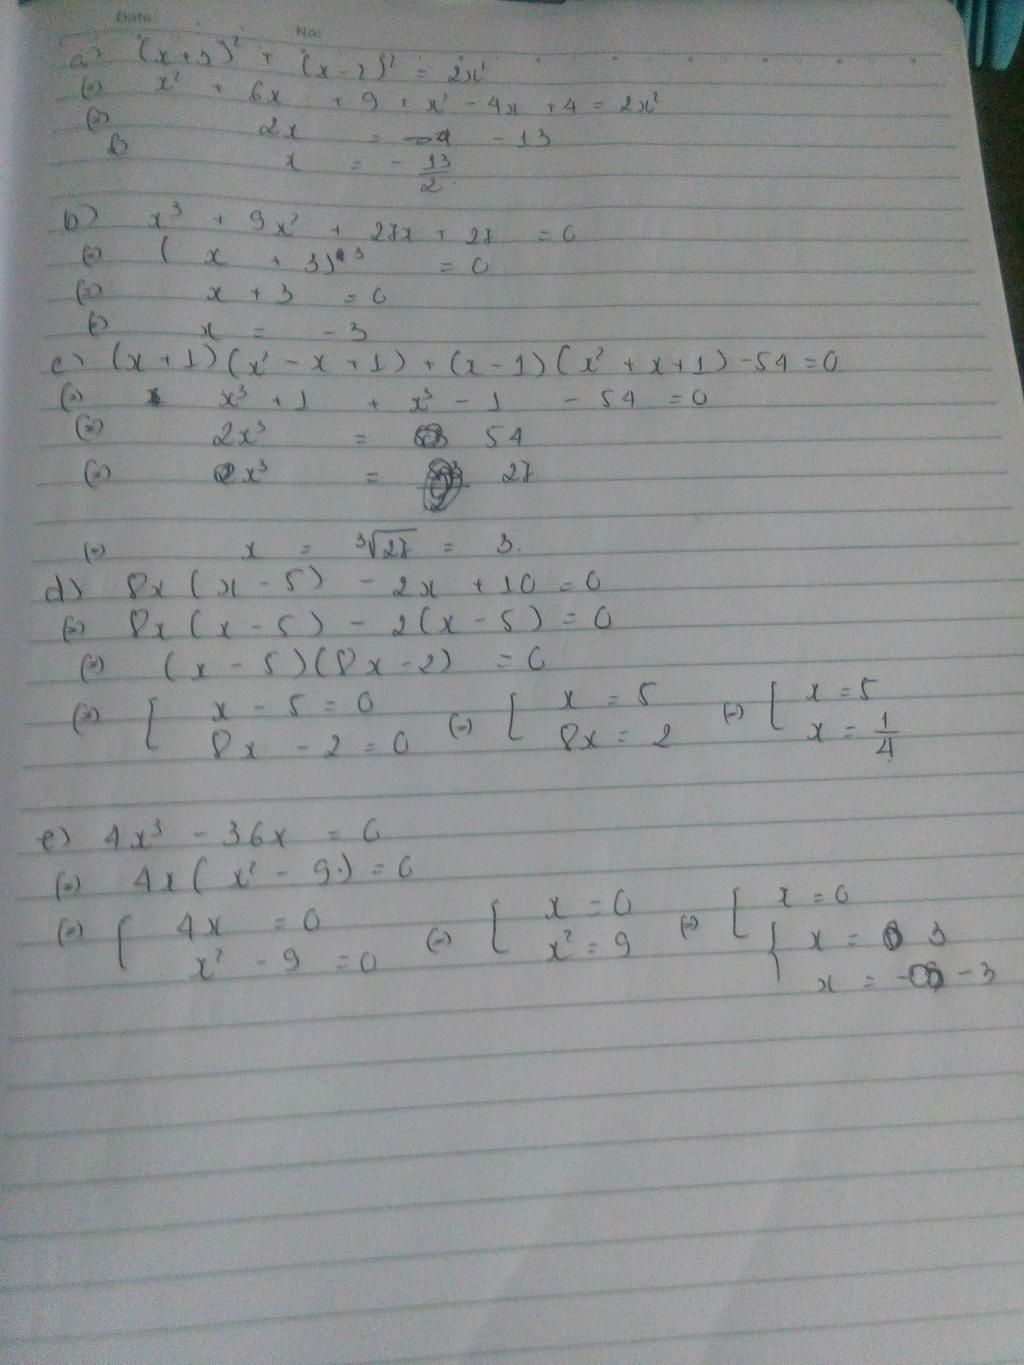 Date:
No:
a) (x+3)² + (x-2)² = 2x²
(=) x² + 6x + 9 + x² - 4x + 4 = 2x²
(=) 2x = - 13
(=) x = - 13/2
b) x³ + 9x² + 27x + 27 = 0
(=) ( x + 3)³ = 0
(=) x + 3 = 0
(=) x = - 3
c) (x+1)(x² - x + 1) + (x - 1)(x² + x + 1) - 54 = 0
(=) x³ + 1 + x³ - 1 - 54 = 0
(=) 2x³ = 54
(=) x³ = 27
(=) x = ³√27 = 3.
d) 8x (x - 5) - 2x + 10 = 0
(=) 8x (x - 5) - 2(x - 5) = 0
(=) (x - 5)(8x - 2) = 0
(=) [ x - 5 = 0 (=) [ x = 5 (=) [ x = 5
8x - 2 = 0 8x = 2 x = 1/4
e) 4x³ - 36x = 0
(=) 4x( x² - 9) = 0
(=) [ 4x = 0 (=) [ x = 0 (=) [ x = 0
x² - 9 = 0 x² = 9 { x = 3
x = - 3